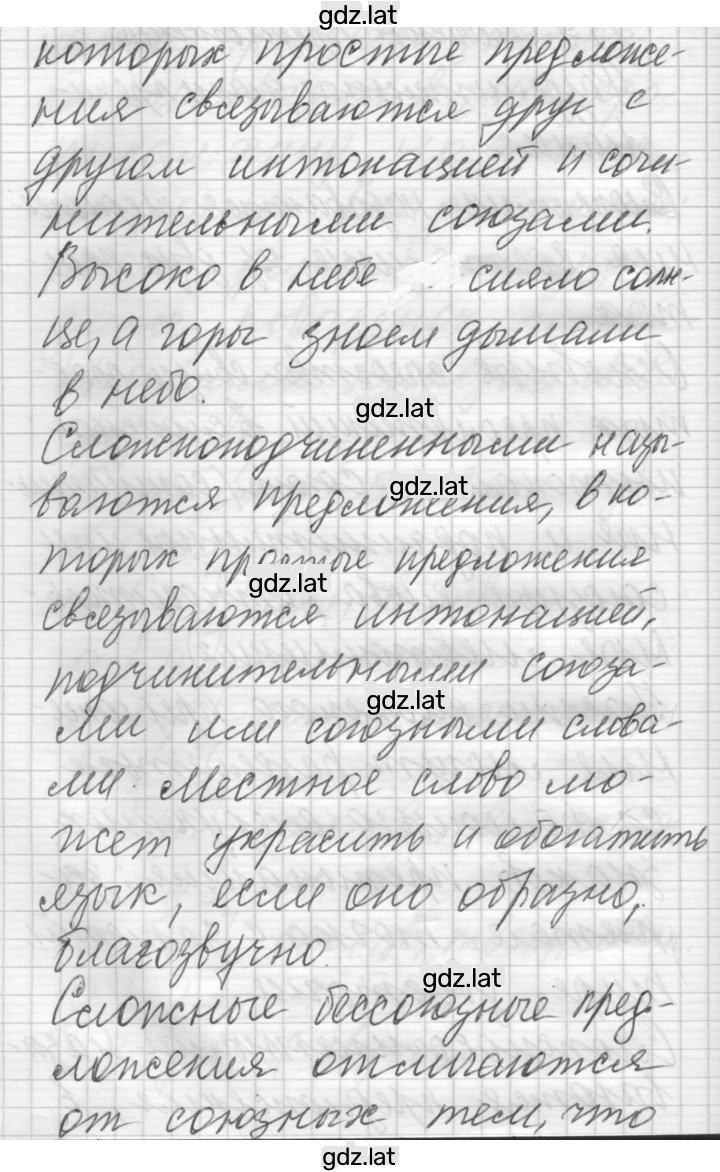 gdz.lat
которых простые предложе-
ния связываются друг с
другом интонацией и сочи-
нительными союзами.
Высоко в небе сияло солн-
це, а горы зноем дышали
в небо.
gdz.lat
Сложноподчиненными назы-
ваются предложения, в ко-
gdz.lat
торых простые предложения
gdz.lat
связываются интонацией,
подчинительными союза-
gdz.lat
ми или союзными слова-
ми. Местное слово мо-
жет украсить и обогатить
язык, если оно образно,
благозвучно.
gdz.lat
Сложные бессоюзные пред-
ложения отличаются
от союзных тем, что
gdz.lat